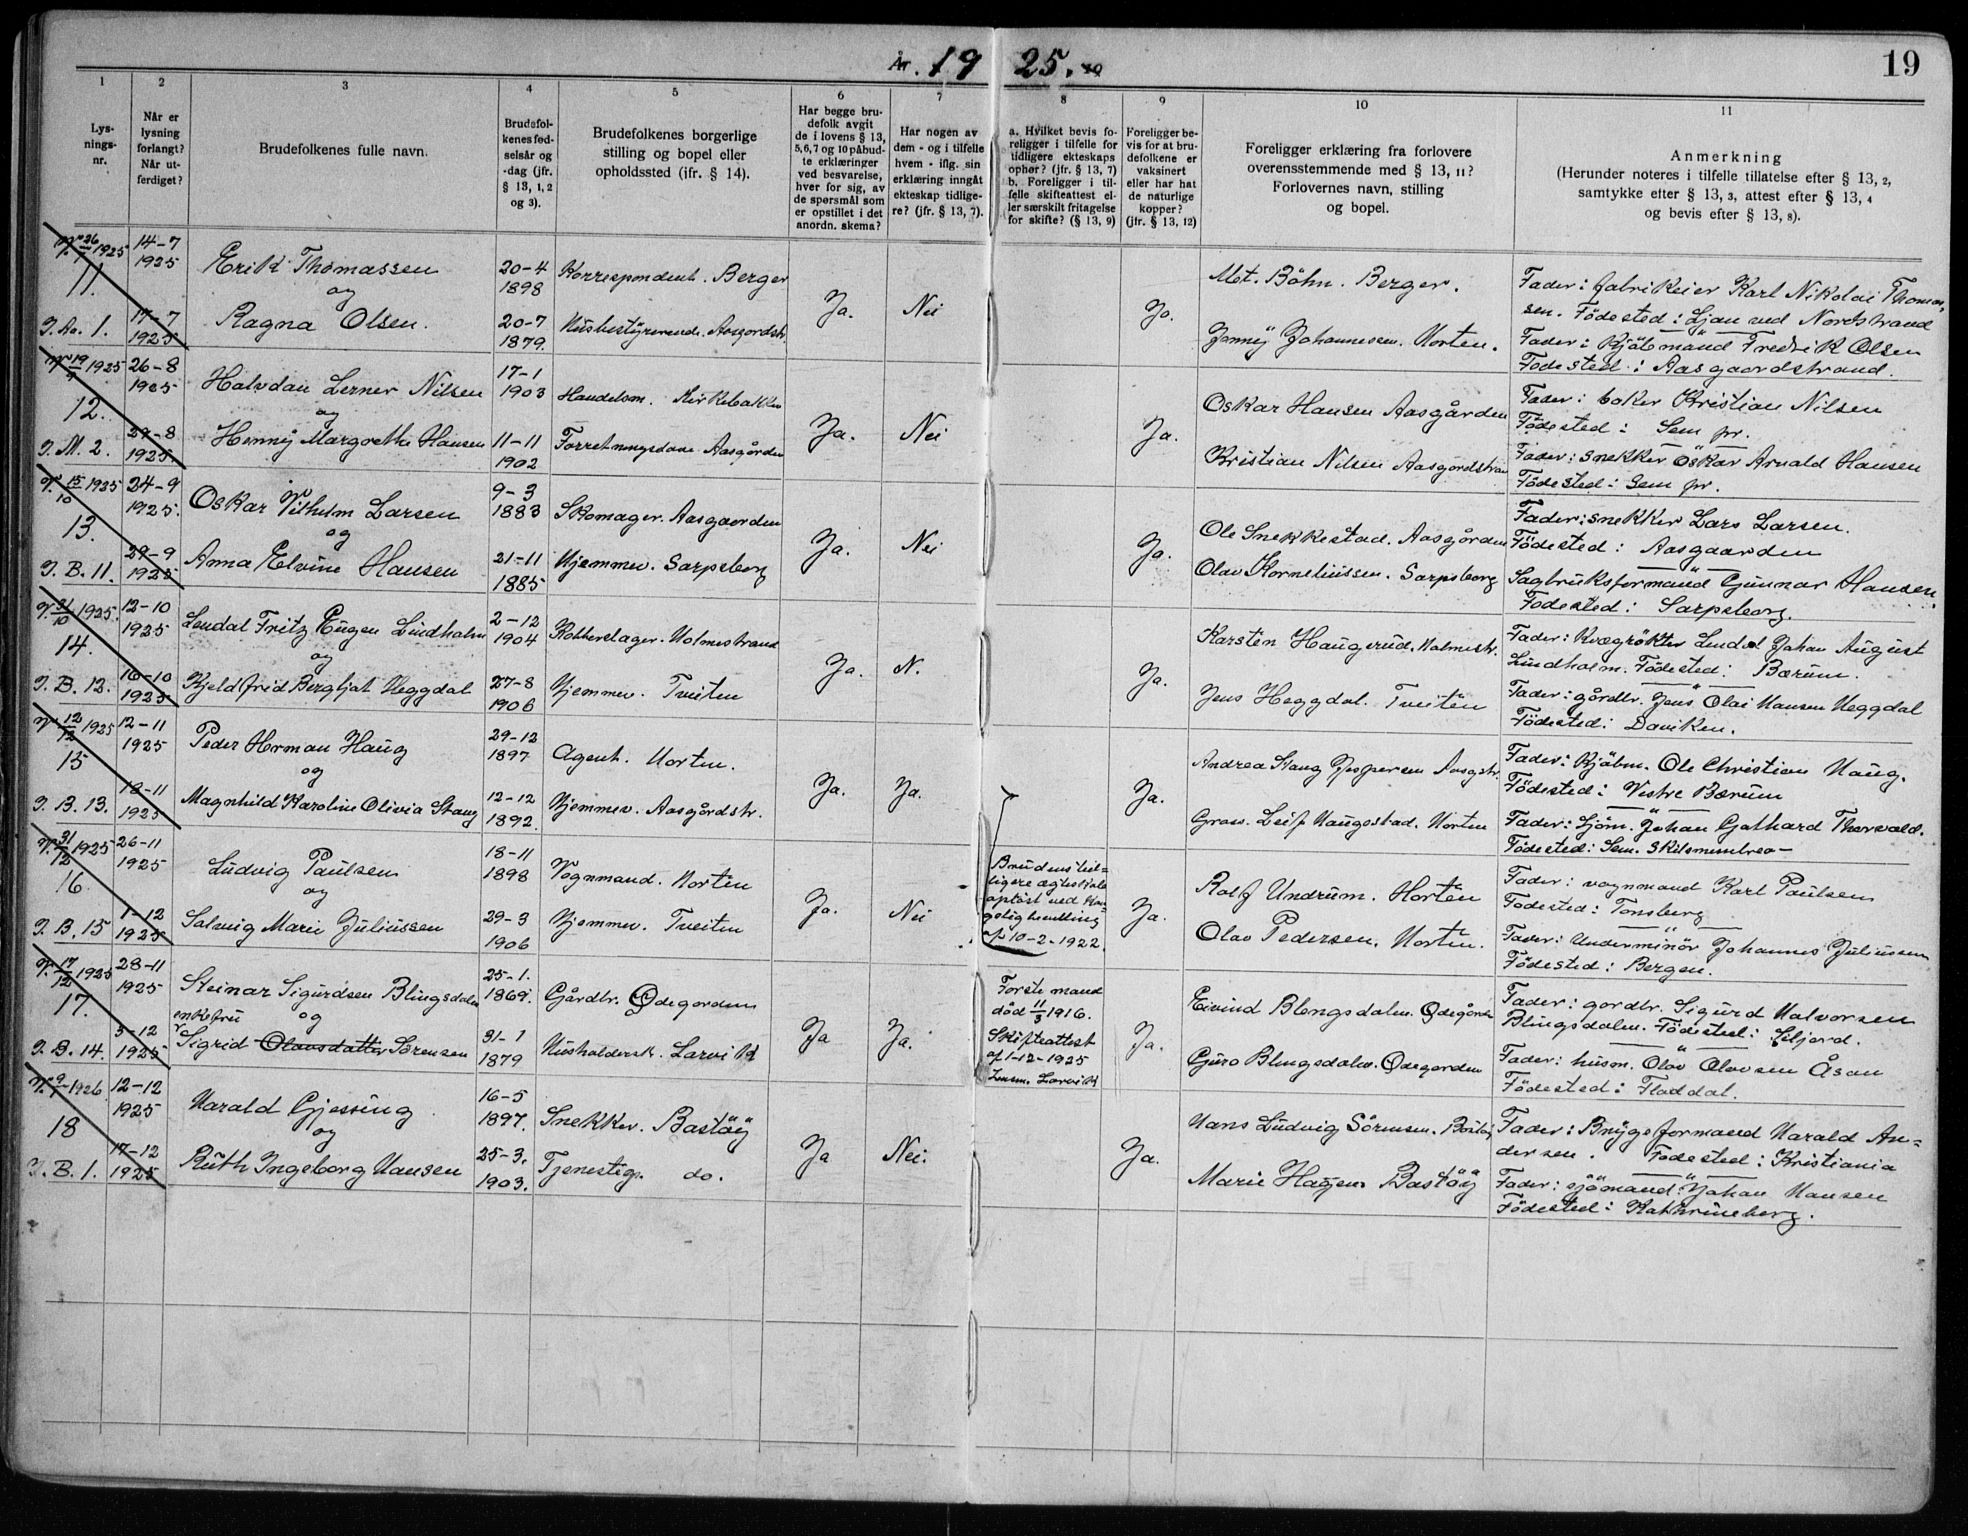 År. 19 25. 19
1 2 3 4 5 6 7 8 9 10 11
Lys-
nings-
nr.
Når er
lysning
forlangt?
Når ut-
ferdiget?
Brudefolkenes fulle navn.
Brudefol-
kenes fød-
selsår og
-dag (jfr.
§ 13, 1, 2
og 3).
Brudefolkenes borgerlige
stilling og bopel eller
opholdssted (jfr. § 14).
Har begge bru-
defolk avgit
de i lovens § 13,
5, 6, 7 og 10 påbud-
te erklæringer
ved besvarelse,
hver for sig, av
de spørsmål som
er opstillet i det
anordn. skema?
Har nogen av
dem - og i tilfelle
hvem - iflg. sin
erklæring inngåt
ekteskap tidlige-
re? (jfr. § 13, 7).
a. Hvilket bevis fo-
religger i tilfelle for
tidligere ekteskaps
ophør? (jfr. § 13, 7)
b. Foreligger i til-
felle skifteattest el-
ler særskilt fritagelse
for skifte? (§ 13, 9)
Foreligger be-
vis for at bru-
defolkene er
vaksinert
eller har hat
de naturlige
kopper?
(jfr. § 13, 12)
Foreligger erklæring fra forlovere
overensstemmende med § 13, 11?
Forlovernes navn, stilling
og bopel.
Anmerkning
(Herunder noteres i tilfelle tillatelse efter § 13, 2,
samtykke efter § 13, 3, attest efter § 13, 4
og bevis efter § 13, 8).
19
V. 26/7 1925
11.
J. Aa. 1.
14-7
1925
17-7
1925
Erik Thomassen
og
Ragna Olsen.
20-4
1898
20-7
1879.
Korrespondent. Berger
Husbestyrerinde. Aasgordstr.
Ja.
Nei
Ja.
Met. Böhn. Berger.
Jenny Johannessen. Horten.
Fader: fabrikeier Karl Nikolai Thomas-
sen. Födested: Ljan ved Nordstrand
Fader: Kjöbmand Fredrik Olsen
Födested: Aasgaardstrand.
V. 19/9 1925
12.
J. M. 2.
26-8
1925
29-8
1925.
Halvdan Lerner Nilsen
og
Henny Margrethe Hansen
17-1
1903
11-11
1902
Handelsm. Kirkebakken
Forretningsdame Aasgården
Ja.
Nei
Ja.
Oskar Hansen Aasgården
Kristian Nilsen Aasgordstran
Fader: baker Kristian Nilsen
Födested: Sem pr.
Fader: snekker Oskar Arnald Hansen
Födested: Sem pr.
V. 15/10 1925
13.
J. B. 11.
24-9
1925.
29-9
1925
Oskar Vilhelm Larsen
og
Anna Elvine Hansen
9-3
1883
21-11
1885
Skomager. Aasgaorden
Hjemmev. Sarpsborg
Ja.
Nei
Ja.
Ole Snekkestad. Aasgården
Olav Kornelüssen. Sarpsborg
Fader: snekker Lars Larsen.
Födested: Aasgaarden
Sagbruksformand Gunnar Hansen.
Födested: Sarpsborg.
V. 31/10 1925.
14.
J. B. 12.
12-10
1925
16-10
1925
Lendal Fritz Eugen Lindholm
og
Kjeldfrid Bergljot Heggdal
2-12
1904
27-8
1906
Kobberslager. Holmestrand
Hjemmev. Tveiten
Ja.
N.
Ja.
Karsten Haugerud. Holmestr.
Jens Heggdal. Tveiten
Fader: Kvægrökter Lendal Johan August
Lindholm. Födested: Bærum.
Fader: gårdbr. Jens Olai Hansen Heggdal
Födested: Daviken.
V. 12/12 1925
15
J. B. 13.
12-11
1925
18-11
1925
Peder Herman Haug
og
Magnhild Karoline Olivia Stang
29-12
1897
12-12
1892.
Agent. Horten.
Hjemmev. Aasgårdstr.
Ja.
Ja.
Ja.
Andrea Stang Jespersen Aasgstr.
Grosv. Leif Haugestad. Horten
Fader: Kjöbm. Ole Christian Haug.
Födested: Vestre Bærum
Fader: Sjöm. Johan Gothard Thorvald.
Födested: Sem.
V. 31/12 1925
16.
J. B. 15
26-11
1925
1-12
1925
Ludvig Paulsen
og
Solveig Marie Juliussen
18-11
1898
29-3
1906
Vognmand. Horten
Hjemmev. Tveiten
Ja.
Nei
Brudens tid-
ligere ægteskab
oplöst ved kon-
gelig bevilling
af 10-2-1922.
Ja.
Rolf Undrum. Horten
Olav Pedersen. Horten.
Fader: vognmand Karl Paulsen
Födested: Tönsberg
Fader: Underminör Johannes Juliussen
Födested: Bergen.
V. 17/12 1925
17.
J. B. 14.
28-11
1925
3-12
1925
Steinar Sigurdsen Blengsdalen
enkefru og
Sigrid Olavsdatter Sörensen
25-1.
1869.
31-1
1879
Gårdbr. Ødegorden
Husholdersk. Larvik
Ja
Ja.
Förste mand
död 11/3 1916.
Skifteattest
af 1-12-1925
Lensm. Larvik
Ja.
Eivind Blengsdalen. Ødegården
Guro Blengsdalen. Ødegorden
Fader: gordbr. Sigurd Halvorsen
Blengsdalen. Födested: Seljord.
Fader: husm. Olav Olavsen Åsan
Födested: Fladdal.
V. 9/1 1926
18
J. B. 1.
12-12
1925
17-12
1925
Harald Gjessing
og
Ruth Ingeborg Hansen
16-5
1897.
25-3.
1903.
Snekker. Bastöy
Tjenestig. do.
Ja
Nei.
Ja.
Hans Ludvig Sörensen. Bastöy
Marie Hagen Bastöy
Fader: Bryggeformand Harald An-
dersen. Födested: Kristiania
Fader: sjömand: Johan Hansen
Födested: Kathrineberg.